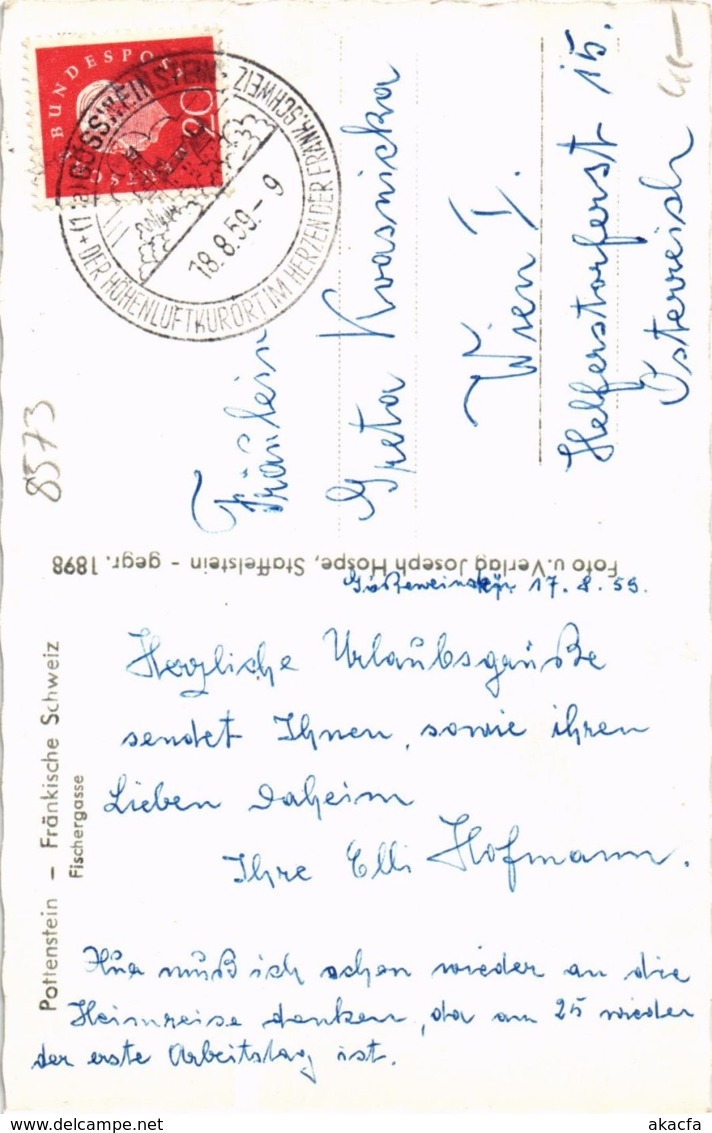 BUNDESPOST
20
(13a) GÖSSWEINSTEIN
DER HÖHENLUFTKURORT IM HERZEN DER FRÄNK. SCHWEIZ
18.8.59.-9
8573
Fräulein
Greta Kvasnicka
Wien I.
Helferstorferst 15.
Österreich
Foto u. Verlag Joseph Hospe, Staffelstein - gegr. 1898
Pottenstein - Fränkische Schweiz
Fischergasse
17.8.59.
Herzliche Urlaubsgrüße
sendet Ihnen, sowie ihren
Lieben daheim
Ihre Elli Hofmann.
muß ich schon wieder an die
Heimreise denken, da am 25 wieder
der erste Arbeitstag ist.
delcampe.net
akacfa